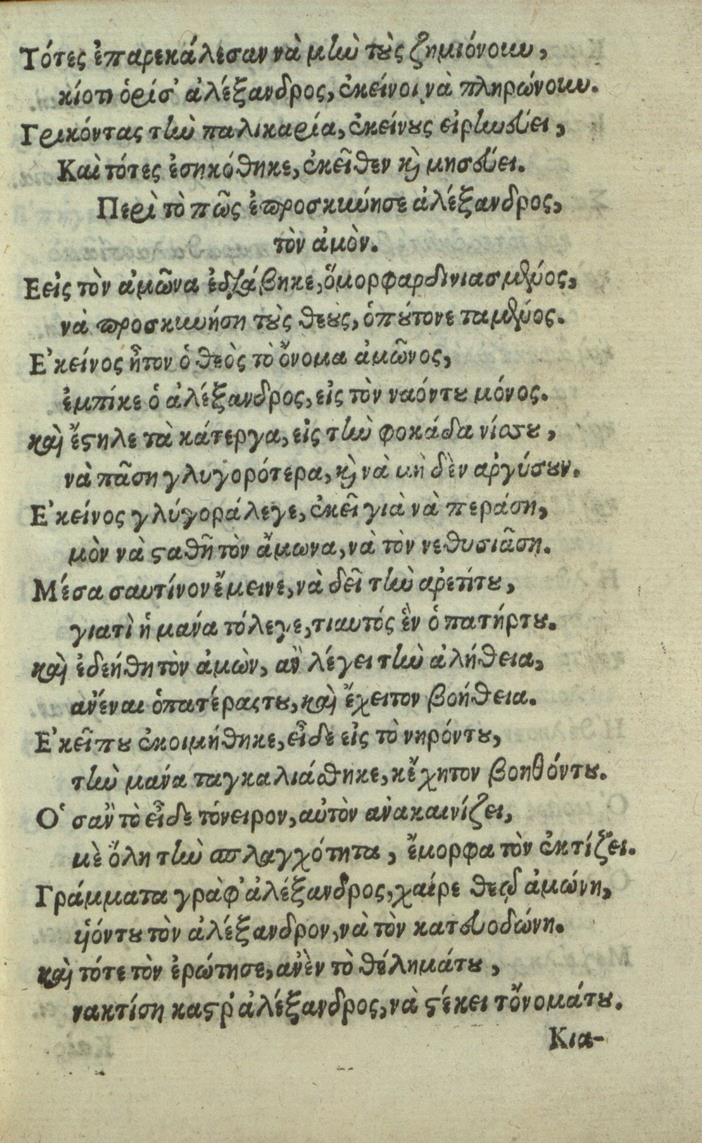 Τότες ἐπαρεκάλεσαν νὰ μὴν τοὺς ζημιόνουν,
κίοτι ὁρίσ' ἀλέξανδρος, ἐκείνοι νὰ πληρώνουν.
Γρικόντας τὴν παλικαρία, ἐκείνους εἰρηνεύει,
Καὶ τότες ἐσηκόθηκε, ἐκεῖθεν καὶ μησεύει.
Περὶ τὸ πῶς ἐπροσκυνήσε ἀλέξανδρος,
τὸν ἀμὸν.
Εεἰς τὸν ἀμῶνα ἐδιάβηκε, ὅμορφαρδινιασμένος,
νὰ προσκυνήση τοὺς θεους, ὁπούτονε ταμένος.
Ε'κείνος ἦτον ὁ θεὸς τὸ ὄνομα ἀμῶνος,
ἐμπίκε ὁ ἀλέξανδρος, εἰς τὸν ναόντου μόνος.
καὶ ἔστηλε τὰ κάτεργα, εἰς τὴν φοκάδα νίσου,
νὰ πᾶση γλυγορότερα, καὶ νὰ μὴ δὲν αργύσουν.
Ε'κείνος γλύγορά λεγε, ἐκεῖ γιὰ νὰ περάση,
μὸν νὰ σταθῆ τὸν ἄμωνα, νὰ τὸν νεθυσιᾶση.
Μέσα σαυτίνον ἔμεινε, νὰ δεῖ τὴν αρετίτου,
γιατὶ ἡ μανά τόλεγε, τιαυτός ἒν ὁ πατήρτου.
καὶ ἐδεήθη τὸν ἀμὼν, ἂν λέγει τὴν ἀλήθεια,
ανἔναι ὁπατέραςτου, καὶ ἔχειτον βοήθεια.
Ε'κεῖ που ἐκοιμήθηκε, εἶδε εἰς τὸ νηρόντου,
τὴν μανά ταγκαλιάσθηκε, κἔχητον βοηθόντου.
Ο῾ σαν τὸ εἶδε τόνειρον, αὐτὸν ἀνακαινίζει,
μὲ ὅλη τὴν σπλαγχότητα, ἔμορφα τὸν ἐκτίζει.
Γράμματα γράφ' ἀλέξανδρος, χαίρε θεὲ ἀμώνη,
ὑόντου τὸν ἀλέξανδρον, νὰ τὸν κατευοδώνη.
καὶ τότε τὸν ἐρώτησε, ανὲν τὸ θέλημάτου,
νακτίση καστρ' ἀλέξανδρος, νὰ στέκει τὄνομάτου.
Κια-